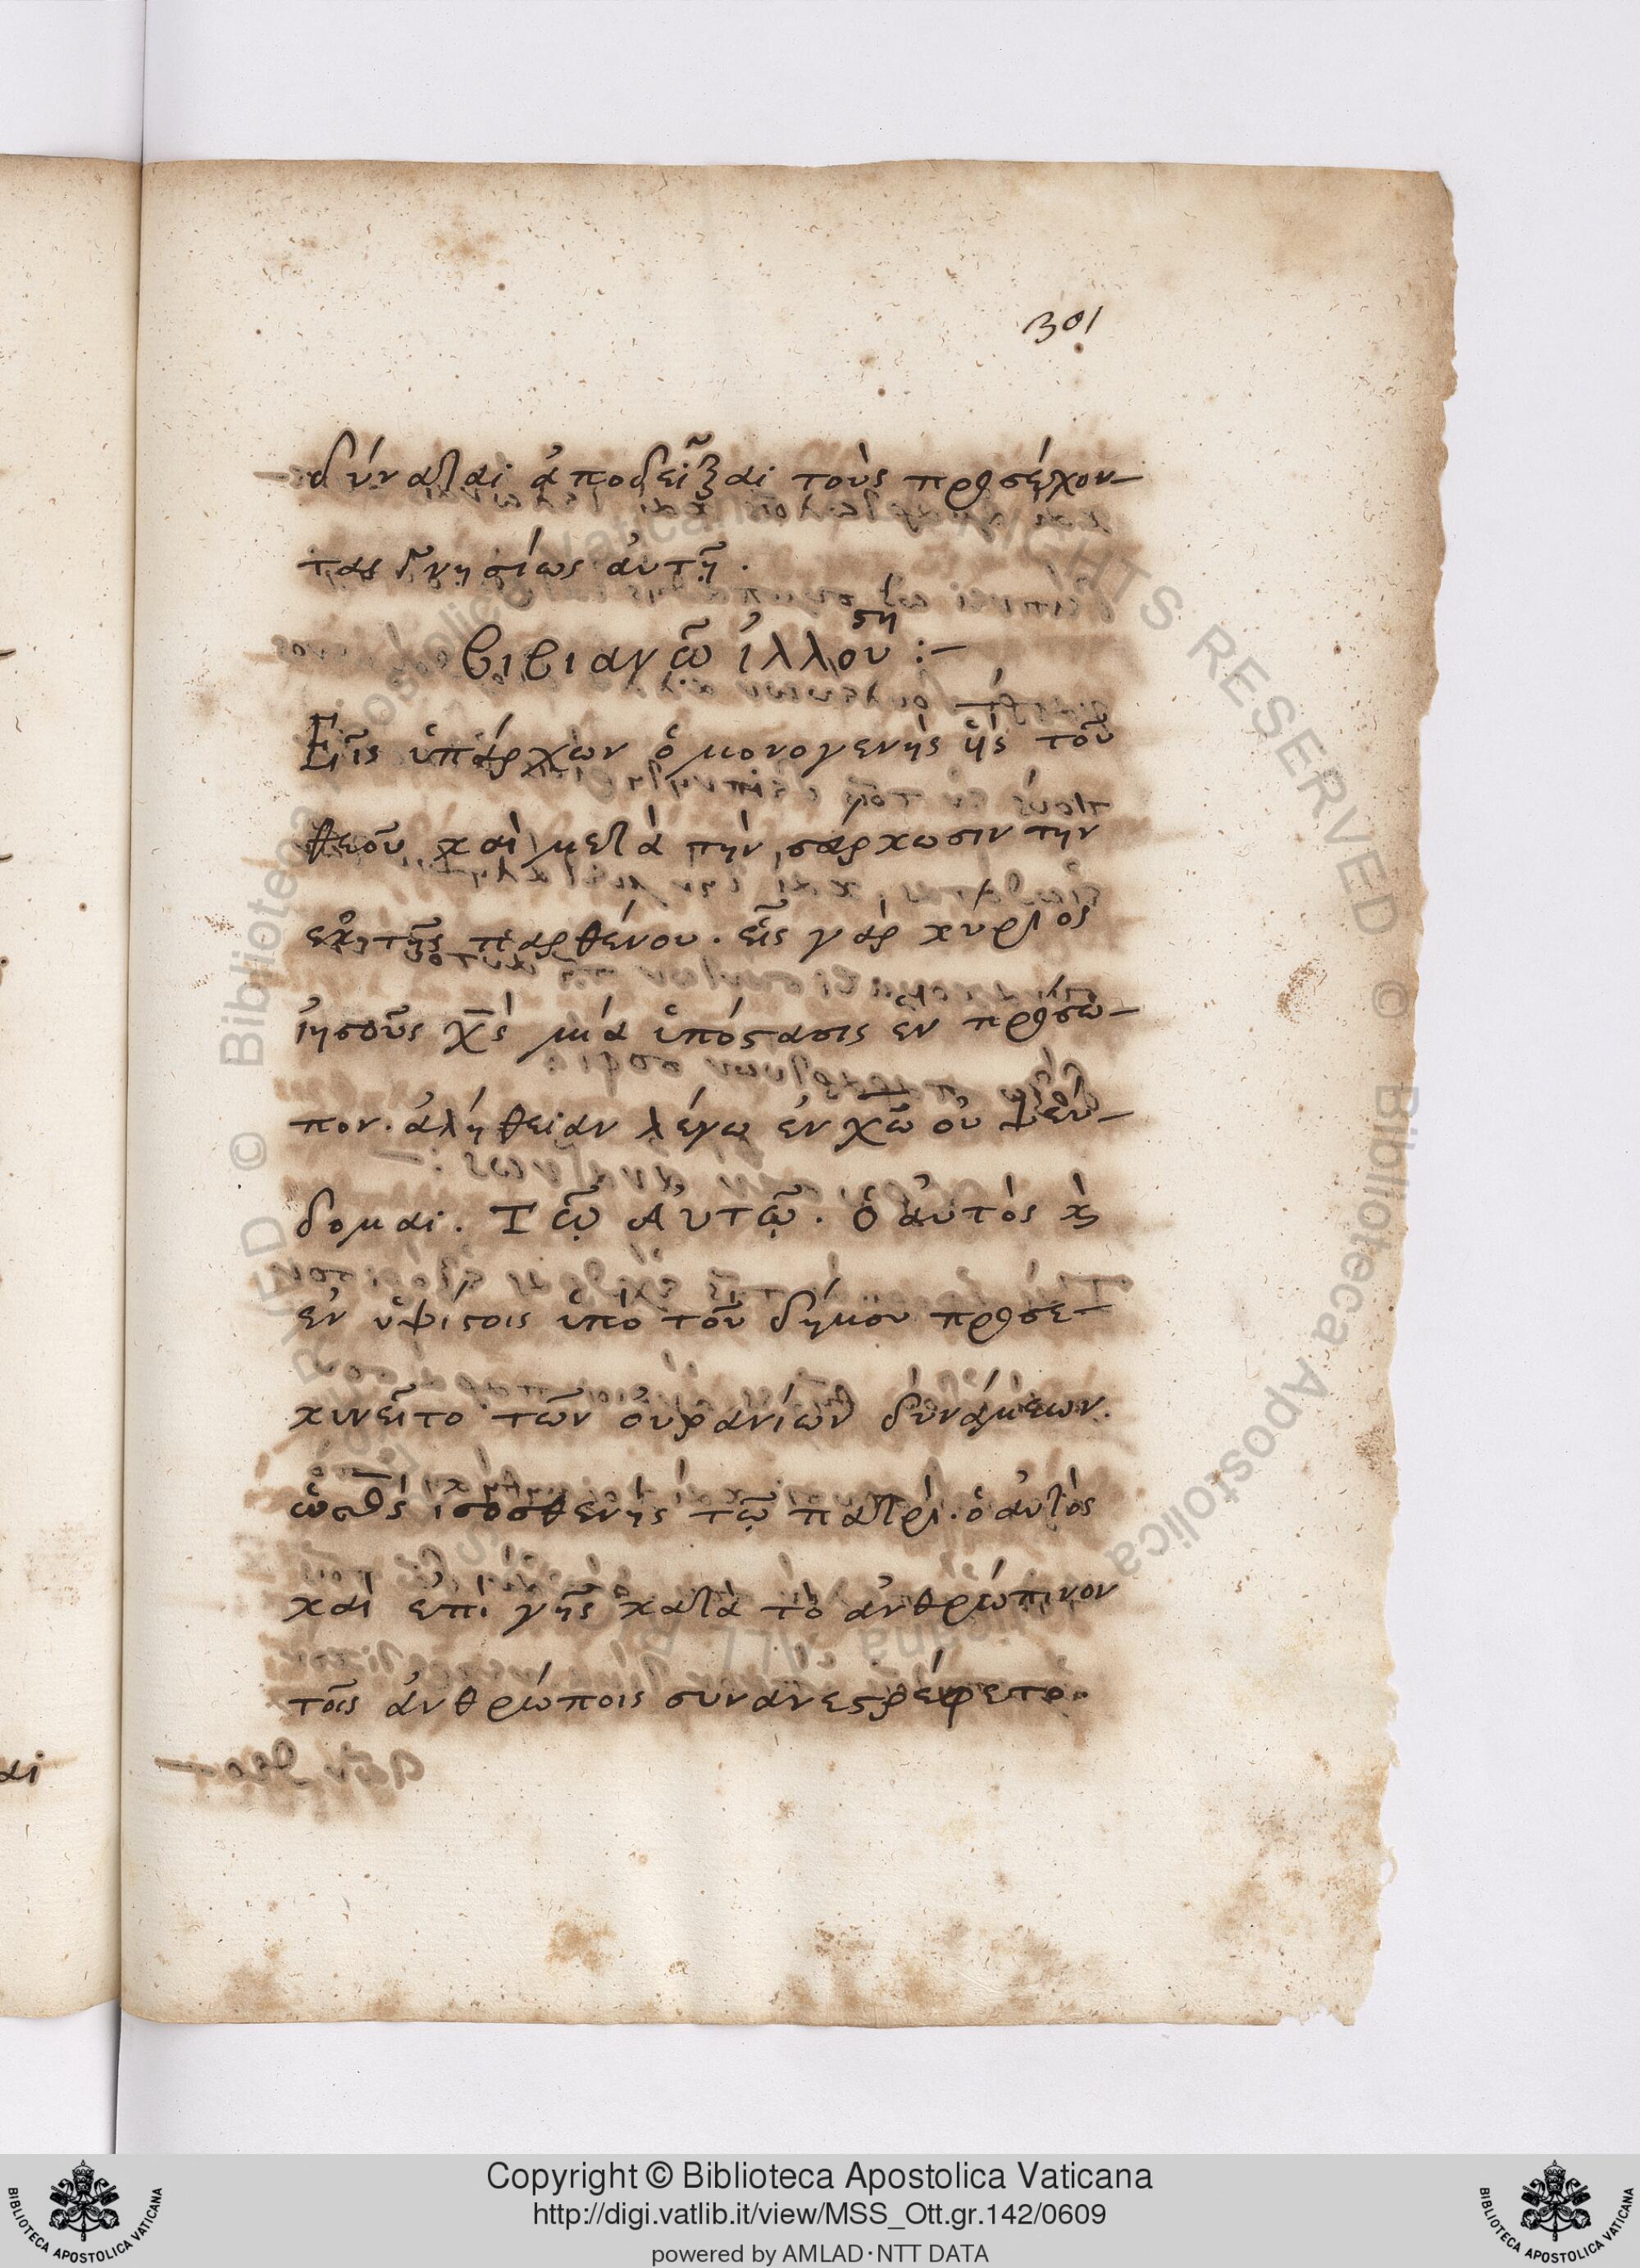 301
δύναται ἀποδεῖξαι τοὺς προσέχον-
τας γνησίως αὐτῇ.
βιβιανῶ ἰλλουϛη :-
Εἷς ὑπάρχων ὁ μονογενὴς ὑς τοῦ
θεοῦ καὶ μετὰ τὴν σάρκωσιν τὴν
ἐκ τῆς παρθένου. εἷς γὰρ κύριος
ἰησοῦς χς μία ὑπόστασις ἓν πρόσω-
πον. ἀλήθειαν λέγω ἐν χῶ οὐ ψεύ-
δομαι. Τῶ Αὐτῶ. ὁ αὐτὸς κ
ἐν ὑψίστοις ὑπὸ τοῦ δήμου προσε-
κυνεῖτο τῶν οὐρανίων δυνάμεων.
ὡς θς ἰσοσθενὴς τῶ πατρὶ. ὁ αὐτὸς
καὶ ἐπὶ γῆς κατὰ τὸ ἀνθρώπινον
τοῖς ἀνθρώποις συνανεστρέφετο.
αι
Copyright © Biblioteca Apostolica Vaticana
http://digi.vatlib.it/view/MSS_Ott.gr.142/0609
powered by AMLAD·NTT DATA
BIBLIOTECA APOSTOLICA VATICANA
BIBLIOTECA APOSTOLICA VATICANA